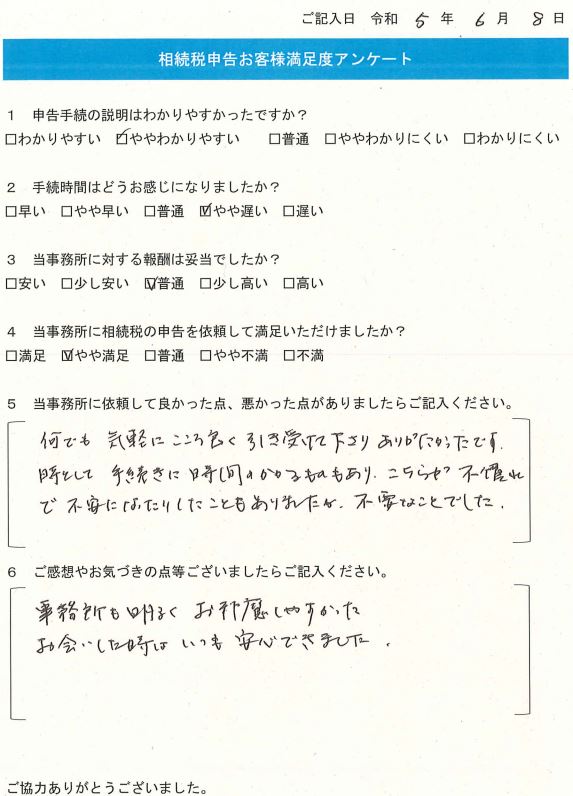 ご記入日 令和 5 年 6 月 8 日
相続税申告お客様満足度アンケート
1 申告手続の説明はわかりやすかったですか?
□わかりやすい ☑ややわかりやすい □普通 □ややわかりにくい □わかりにくい
2 手続時間はどうお感じになりましたか?
□早い □やや早い □普通 ☑やや遅い □遅い
3 当事務所に対する報酬は妥当でしたか?
□安い □少し安い ☑普通 □少し高い □高い
4 当事務所に相続税の申告を依頼して満足いただけましたか?
□満足 ☑やや満足 □普通 □やや不満 □不満
5 当事務所に依頼して良かった点、悪かった点がありましたらご記入ください。
何でも 気軽に こころ良く 引き受けて下さり ありがたかったです.
時として 手続きに 時間のかかるものもあり、こちらが 不慣れ
で 不安になったりしたこともありましたが、不要なことでした.
6 ご感想やお気づきの点等ございましたらご記入ください。
事務所も明るく お邪魔しやすかった
お会いした時は いつも 安心できました.
ご協力ありがとうございました。